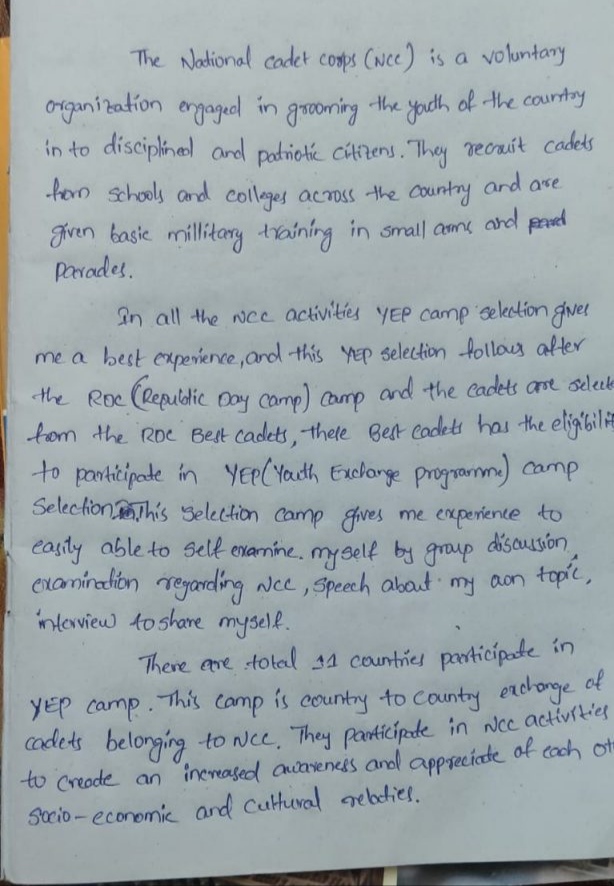 The National cadet corps (NCC) is a voluntary
organization engaged in grooming the youth of the country
in to disciplined and patriotic citizens. They recruit cadets
from schools and colleges across the country and are
given basic millitary training in small arms and
Parades.
In all the NCC activities YEP camp selection gives
me a best experience, and this YEP selection follows after
the RDC (Republic Day Camp) camp and the cadets are select
from the RDC Best cadets, these Best cadets has the eligibili
to participate in YEP (Youth Exchange programme) camp
Selection. This selection camp gives me experience to
easily able to self examine. myself by group discussion,
examination regarding NCC, speech about my own topic,
interview to share myself.
There are total 11 countries participate in
YEP camp. This camp is country to country exchange of
cadets belonging to NCC. They participate in NCC activities
to create an increased awareness and appreciate of each oth
Socio-economic and cultural